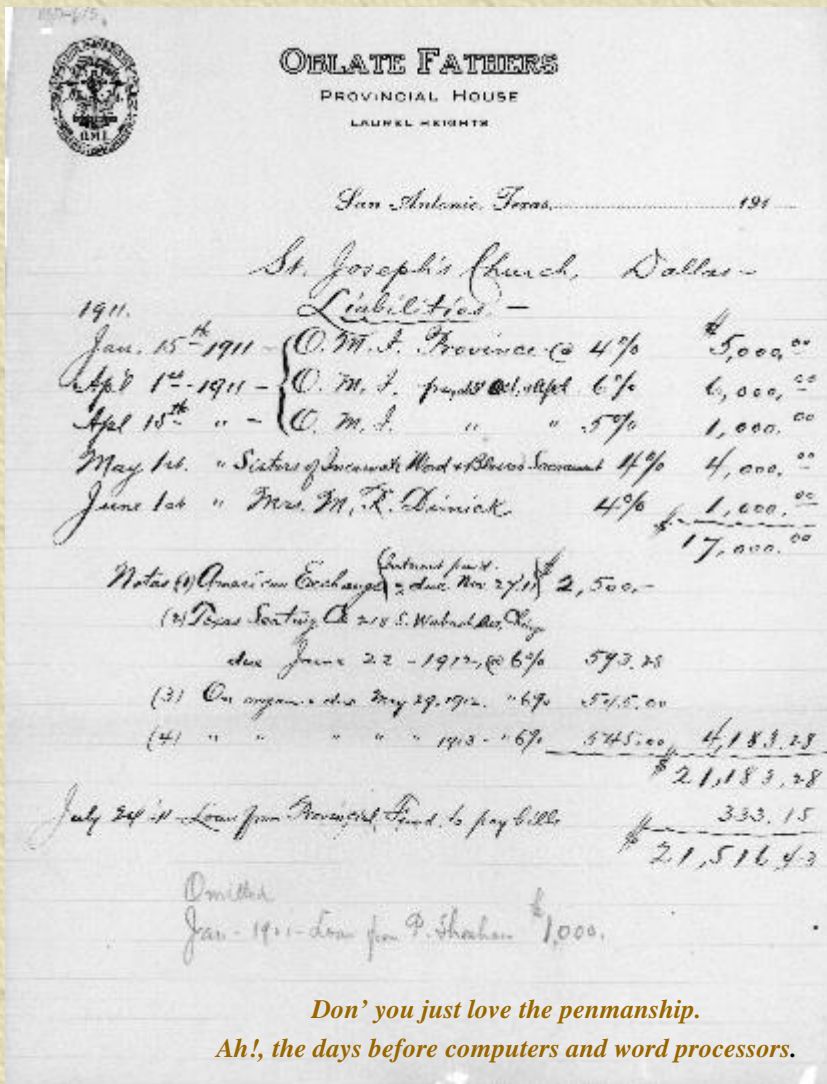 OBLATE FATHERS
PROVINCIAL HOUSE
LAUREL HEIGHTS
O.M.I.
San Antonio, Texas, 191
St. Joseph's Church, Dallas -
1911. Liabilities -
Jan. 15th 1911 - O. M. I. Province @ 4% $5,000.00
Ap'l 1st - 1911 - O. M. I. 6% 6,000.00
Apl 15th " - O. M. I. " " 5% 1,000.00
May 1st. " Sisters of Incarnate Word & Blessed Sacrament 4% 4,000.00
June 1st " Mrs. M. R. 4% 1,000.00
$17,000.00
Notes (1) American Exchange Interest paid. due Nov 27'11 $2,500.-
(2) Texas Seating Co 218 S. Wabash Ave, Chicgo
due June 22 - 1912, @ 6% 593.28
(3) On organ - due May 29, 1912. " 6% 545.00
(4) " " " " " 1913 - " 6% 545.00 4,183.28
$21,183.28
July 24 '11 - Loan from Provincial Fund to pay bills 333.15
$21,516.43
Omitted
Jan - 1911 - Loan from P. $1,000.
Don' you just love the penmanship.
Ah!, the days before computers and word processors.